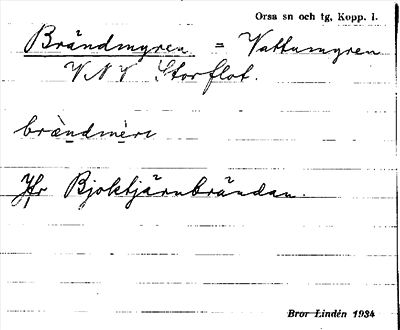 Orsa sn och tg, Kopp. l.
Brändmyren = Vattumyren
VNV Storflot.
bràndmèrɩ
Jfr Bjoktjärnbrändan.
Bror Lindén 1934